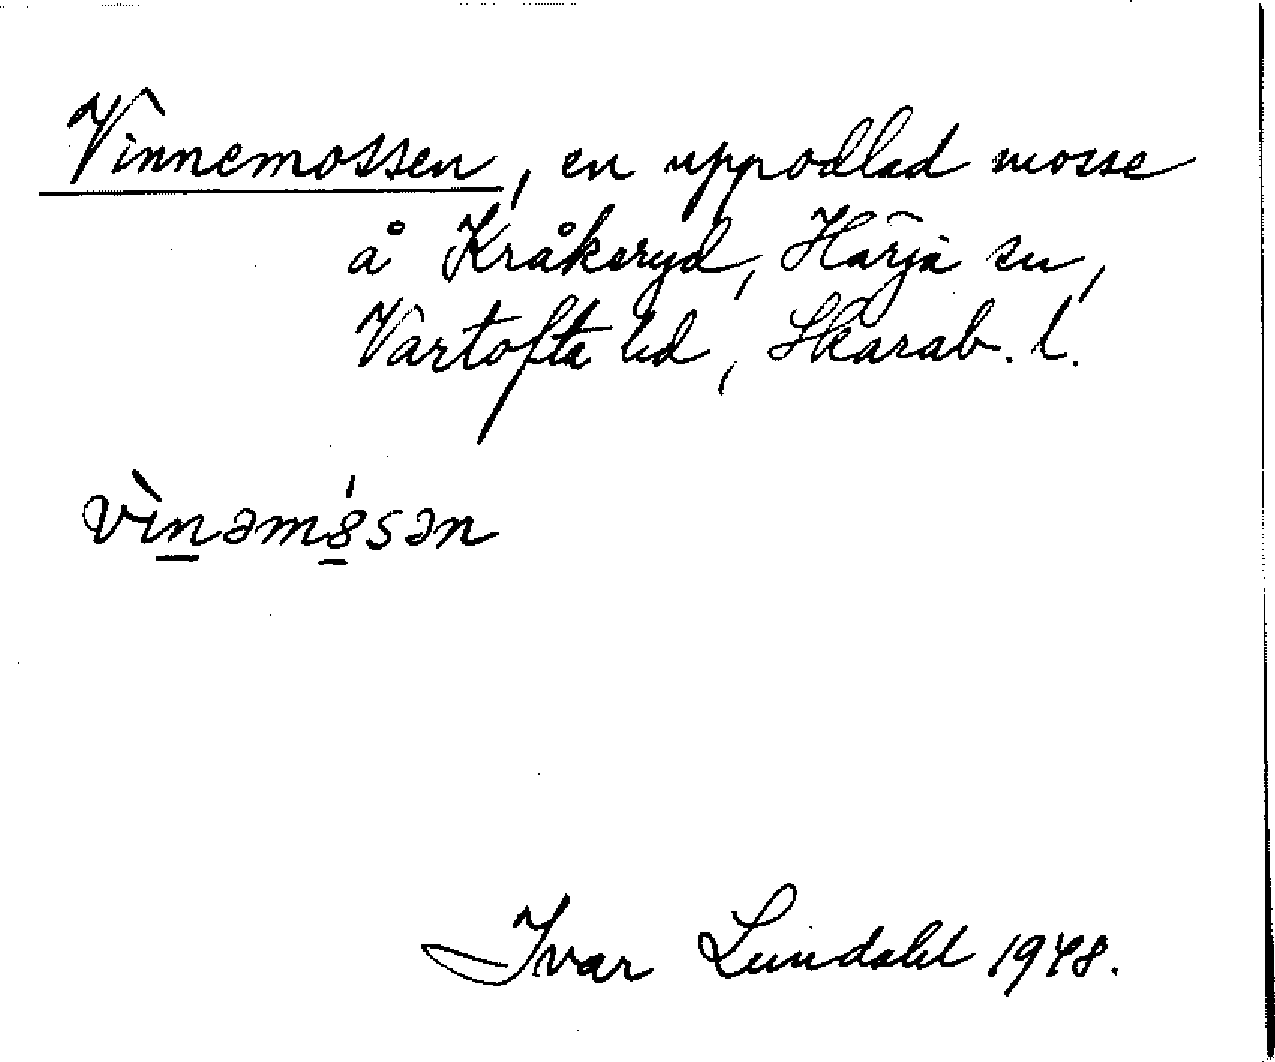 Vinnemossen, en uppodlad mosse
å Kråkeryd, Härja sn,
Vartofta hd, Skarab. l.
vìnəmósən
Ivar Lundahl 1948.